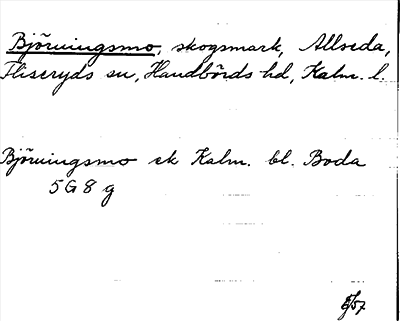 Björningsmo, skogsmark, Allseda,
Fliseryds sn, Handbörds hd, Kalm. l.
Björningsmo ek Kalm. bl. Boda
5G8g